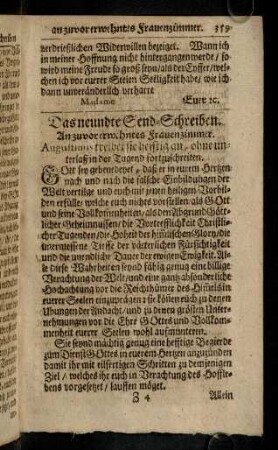 an zuvor erwehntes Frauenzimmer. 359
verdrießlichen Widerwillen bezeiget. Wann ich
in meiner Hoffnung nicht hintergangen werde / so
wird meine Freude so groß seyn / als der Eyffer / wel-
chen ich vor eurer Seelen Seeligkeit habe / wie ich
dann unveränderlich verharre
Madame Eure ꝛc.
Das neundte Send-Schreiben.
An zuvor erwehntes Frauenzimmer.
Augustinus treibet sie hefftig an / ohne un-
terlaß in der Tugend fortzuschreiten.
GOtt sey gebenedeyet / daß er in eurem Hertzen
nach und nach die falsche Einbildungen der
Welt vertilge und euch mit jenen heiligen Vorbil-
den erfülle / welche euch nichts vorstellen / als GOtt
und seine Vollkommenheiten / als den Abgrund Gött-
licher Geheimnussen / die Vortrefflichkeit Christli-
cher Tugenden / die Hoheit der himlischen Glory / die
unermessene Tieffe der vätterlichen Fürsichtigkeit
und die unendliche Dauer der ewigen Ewigkeit. Al-
le diese Wahrheiten seynd fähig genug eine billige
Verachtung der Welt / und eine gantz absönderliche
Hochachtung vor die Reichthümer des Himels in
eurer Seelen einzuprägen: sie können euch zu denen
Ubungen der Andacht / und zu denen grösten Unter-
nehmungen vor die Ehre GOttes und Vollkom-
menheit eurer Seelen wohl aufmunteren.
Sie seynd mächtig genug eine hefftige Begierde
zum Dienst GOttes in euerem Hertzen anzuzünden
damit ihr mit eilfertigen Schritten zu demjenigen
Ziel / welches ihr euch in Verachtung des Hoffle-
bens vorgesetzet / lauffen möget.
Z 4 Allein